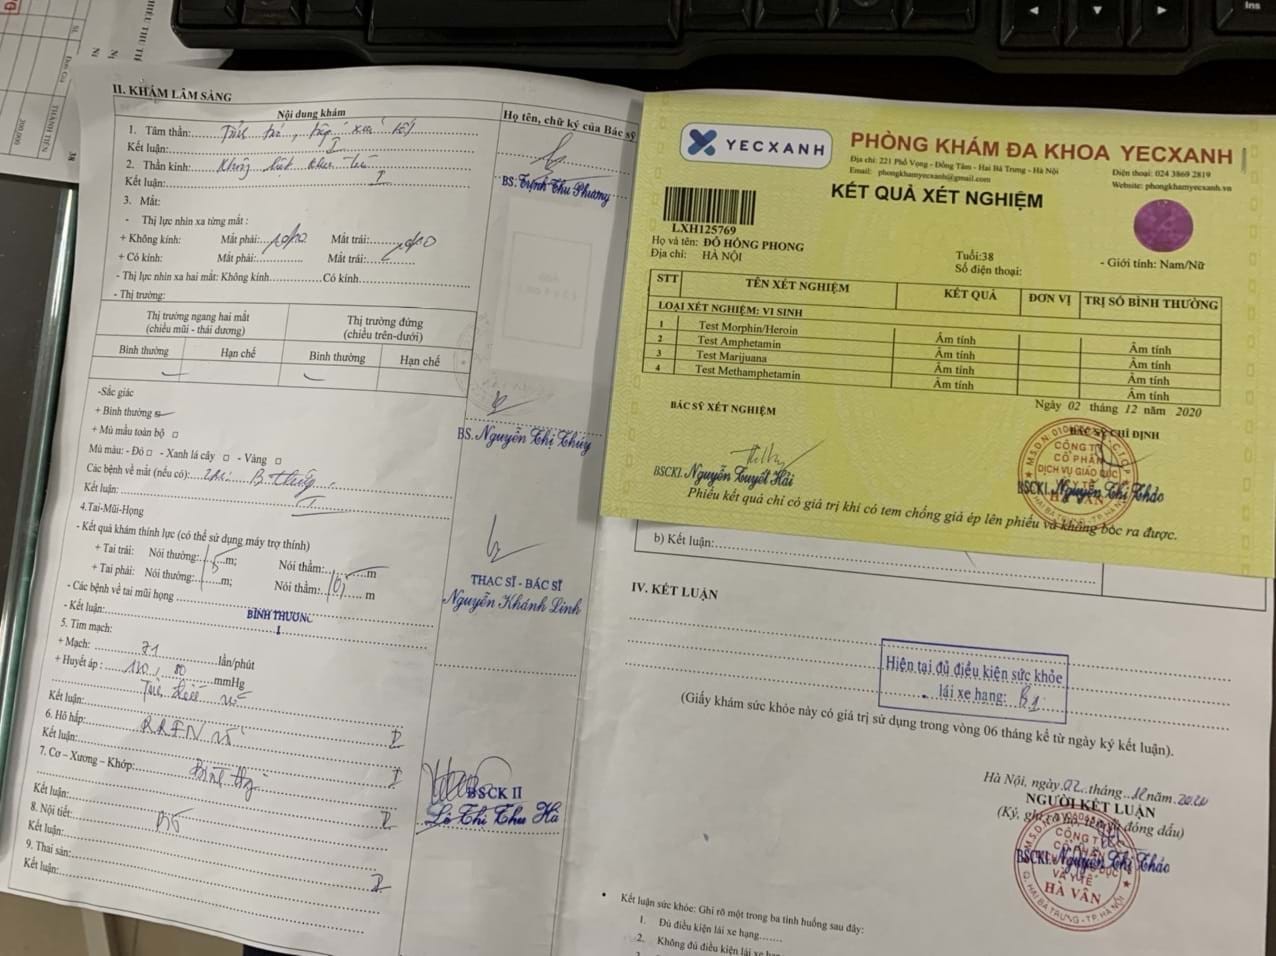 II. KHÁM LÂM SÀNG
Nội dung khám
Họ tên, chữ ký của Bác sỹ
1. Tâm thần:
Kết luận: I
2. Thần kinh:
Kết luận: I
BS. Trịnh Thu Phương
3. Mắt:
- Thị lực nhìn xa từng mắt :
+ Không kính: Mắt phải: 10/10 Mắt trái: 10/10
+ Có kính: Mắt phải: Mắt trái:
- Thị lực nhìn xa hai mắt: Không kính Có kính
- Thị trường:
Thị trường ngang hai mắt
(chiều mũi - thái dương)
Thị trường đứng
(chiều trên-dưới)
Bình thường Hạn chế Bình thường Hạn chế
-Sắc giác
+ Bình thường
+ Mù mầu toàn bộ
Mù màu: - Đỏ - Xanh lá cây - Vàng
Các bệnh về mắt (nếu có):
Kết luận: I
BS. Nguyễn Thị Thúy
4.Tai-Mũi-Họng
- Kết quả khám thính lực (có thể sử dụng máy trợ thính)
+ Tai trái: Nói thường: m; Nói thầm: m
+ Tai phải: Nói thường: m; Nói thầm: m
- Các bệnh về tai mũi họng
- Kết luận: BÌNH THƯỜNG
I
THẠC SĨ - BÁC SĨ
Nguyễn Khánh Linh
5. Tim mạch:
+ Mạch: 71 lần/phút
+ Huyết áp : mmHg
Kết luận: I
6. Hô hấp: RRFN rõ
Kết luận: I
7. Cơ – Xương – Khớp:
Kết luận: I
8. Nội tiết:
Kết luận: I
9. Thai sản:
Kết luận:
BSCK II
Lê Thị Thu Hà
YECXANH
PHÒNG KHÁM ĐA KHOA YECXANH
Địa chỉ: 221 Phố Vọng - Đồng Tâm - Hai Bà Trưng - Hà Nội Điện thoại: 024 3869 2819
Email: phongkhamyecxanh@gmail.com Website: phongkhamyecxanh.vn
KẾT QUẢ XÉT NGHIỆM
LXH125769
Họ và tên: ĐỖ HỒNG PHONG Tuổi:38 - Giới tính: Nam/Nữ
Địa chỉ: HÀ NỘI Số điện thoại:
STT TÊN XÉT NGHIỆM KẾT QUẢ ĐƠN VỊ TRỊ SỐ BÌNH THƯỜNG
LOẠI XÉT NGHIỆM: VI SINH
1 Test Morphin/Heroin Âm tính Âm tính
2 Test Amphetamin Âm tính Âm tính
3 Test Marijuana Âm tính Âm tính
4 Test Methamphetamin Âm tính Âm tính
Ngày 02 tháng 12 năm 2020
BÁC SỸ XÉT NGHIỆM
BÁC SỸ CHỈ ĐỊNH
CÔNG TY
CỔ PHẦN
DỊCH VỤ GIÁO DỤC
BSCKI. Nguyễn Tuyết Hải
BSCKI. Nguyễn Thị Thảo
Phiếu kết quả chỉ có giá trị khi có tem chống giả ép lên phiếu và không bóc ra được.
b) Kết luận:
IV. KẾT LUẬN
Hiện tại đủ điều kiện sức khỏe
lái xe hạng: B1
(Giấy khám sức khỏe này có giá trị sử dụng trong vòng 06 tháng kể từ ngày ký kết luận).
Hà Nội, ngày 02 tháng 12 năm 2020
NGƯỜI KẾT LUẬN
(Ký, ghi rõ họ, tên và đóng dấu)
BSCKI. Nguyễn Thị Thảo
VÀ Y TẾ
HÀ VÂN
Q. HAI BÀ TRƯNG - TP. HÀ NỘI
• Kết luận sức khỏe: Ghi rõ một trong ba tình huống sau đây:
1. Đủ điều kiện lái xe hạng.......
2. Không đủ điều kiện lái xe